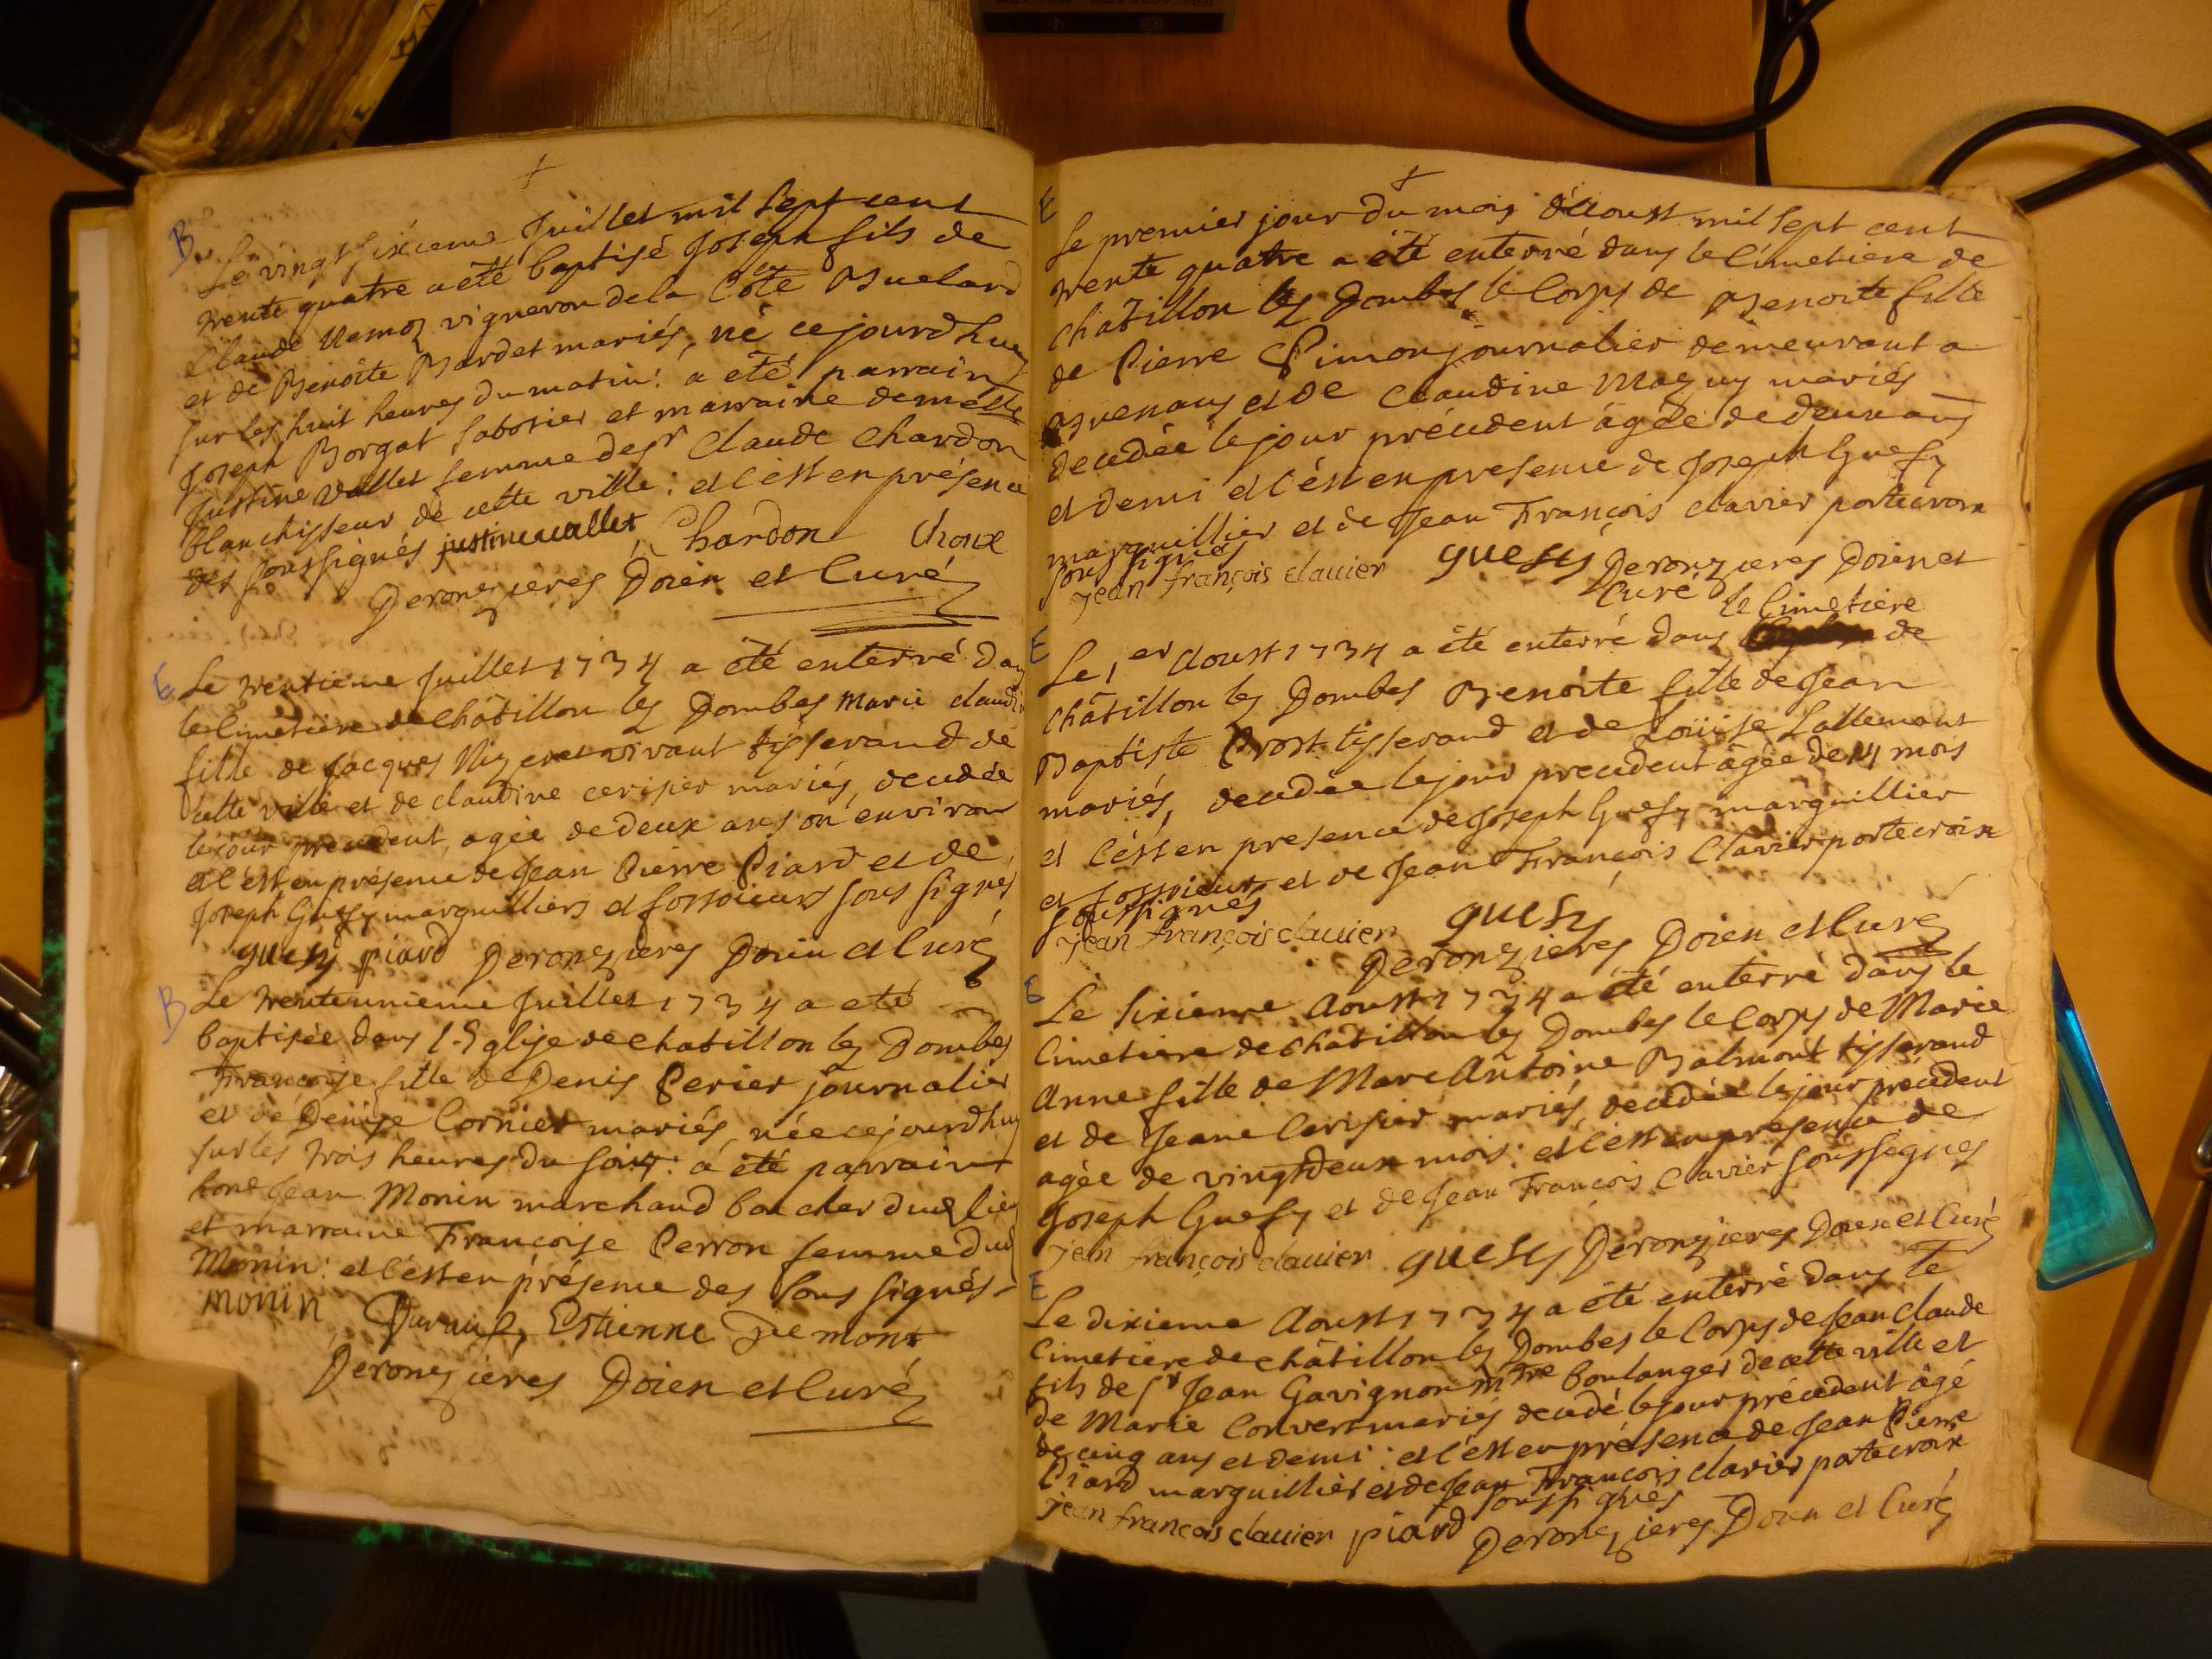 B
Le vingt sixieme Juillet mil sept cent
trente quatre a été baptisé Joseph fils de
Claude vigneron de la Côte
et de Benoite Bardet mariés, né cejourdhuy
sur les huit heures du matin: a été parrain
Joseph Borgat sabotier et marraine demelle
Justine Vallet femme de sr Claude Chardon
blanchisseur de cette ville: et c'est en présence
des soussignés justine vallet Chardon Choux
Deronzieres Doien et Curé
E
Le trentieme Juillet 1734 a été enterré dans
le Cimetiere de Châtillon les Dombes Marie claudi
fille de Jacques vivant tisserand de
cette ville et de claudine cerisier mariés, decedée
le jour precedent, agée de deux ans ou environ
et c'est en présence de Jean Pierre Piard et de
Joseph Guesy marguilliers et fossoieurs sous signés
guesy piard Deronzieres Doien et Curé
B
Le trenteunieme Juillet 1734 a eté
baptisée dans l'Eglise de chatillon les Dombes
Francoise fille de Denis Perier journalier
et de Denise Cornier mariés, née cejourdhuy
sur les trois heures du soir: a été parrain
hone Jean Monin marchand boucher dud lieu
et marraine Francoise Perron femme dud
Monin: et c'est en présence des sous signés
monin Estienne
Deronzieres Doien et Curé
E
Le premier jour du mois d'Aoust mil sept cent
trente quatre a été enterré dans le Cimetiere de
Châtillon les Dombes le Corps de Benoite fille
de Pierre Pimon journalier demeurant a
et de Claudine Maguy mariés
decedée le jour précedent âgée de deux ans
et demi et c'est en presence de Joseph Guesy
marguillier et de Jean François clavier portecroix
soussignés
jean françois clauier guesy Deronzieres Doien et
Curé
le Cimetiere
E
Le 1er Aoust 1734 a été enterré dans de
Châtillon les Dombes Benoite fille de Jean
Baptiste Prost tisserand et de Loüise Lallemant
mariés, decedée le jour precedent âgée de 14 mois
et c'est en presence de Joseph Guesy marguillier
et fossoieur et de Jean François Clavier portecroix
soussignés
jean françois clauier guesy
Deronzieres Doien et Curé
E
Le sixieme Aoust 1734 a été enterré dans le
Cimetiere de Châtillon les Dombes le Corps de Marie
Anne fille de Marc Antoine Balmont tisserand
et de Jeane Cerisier mariés, decedée le jour precedent
agée de vingtdeux mois: et c'est en présence de
Joseph Guesy et de Jean François Clavier soussignés
jean françois clauier guesy Deronzieres Doien et Curé
E
Le dixieme Aoust 1734 a été enterré dans le
Cimetiere de châtillon les Dombes le Corps de Jean Claude
fils de sr Jean Gavignon mtre boulanger de cette ville et
de Marie Convert mariés decedé le jour précedent âgé
de cinq ans et demi: et c'est en présence de Jean Pierre
Piard marguillier et de Jean François clavier portecroix
soussignés
jean françois clauier piard Deronzieres Doien et Curé